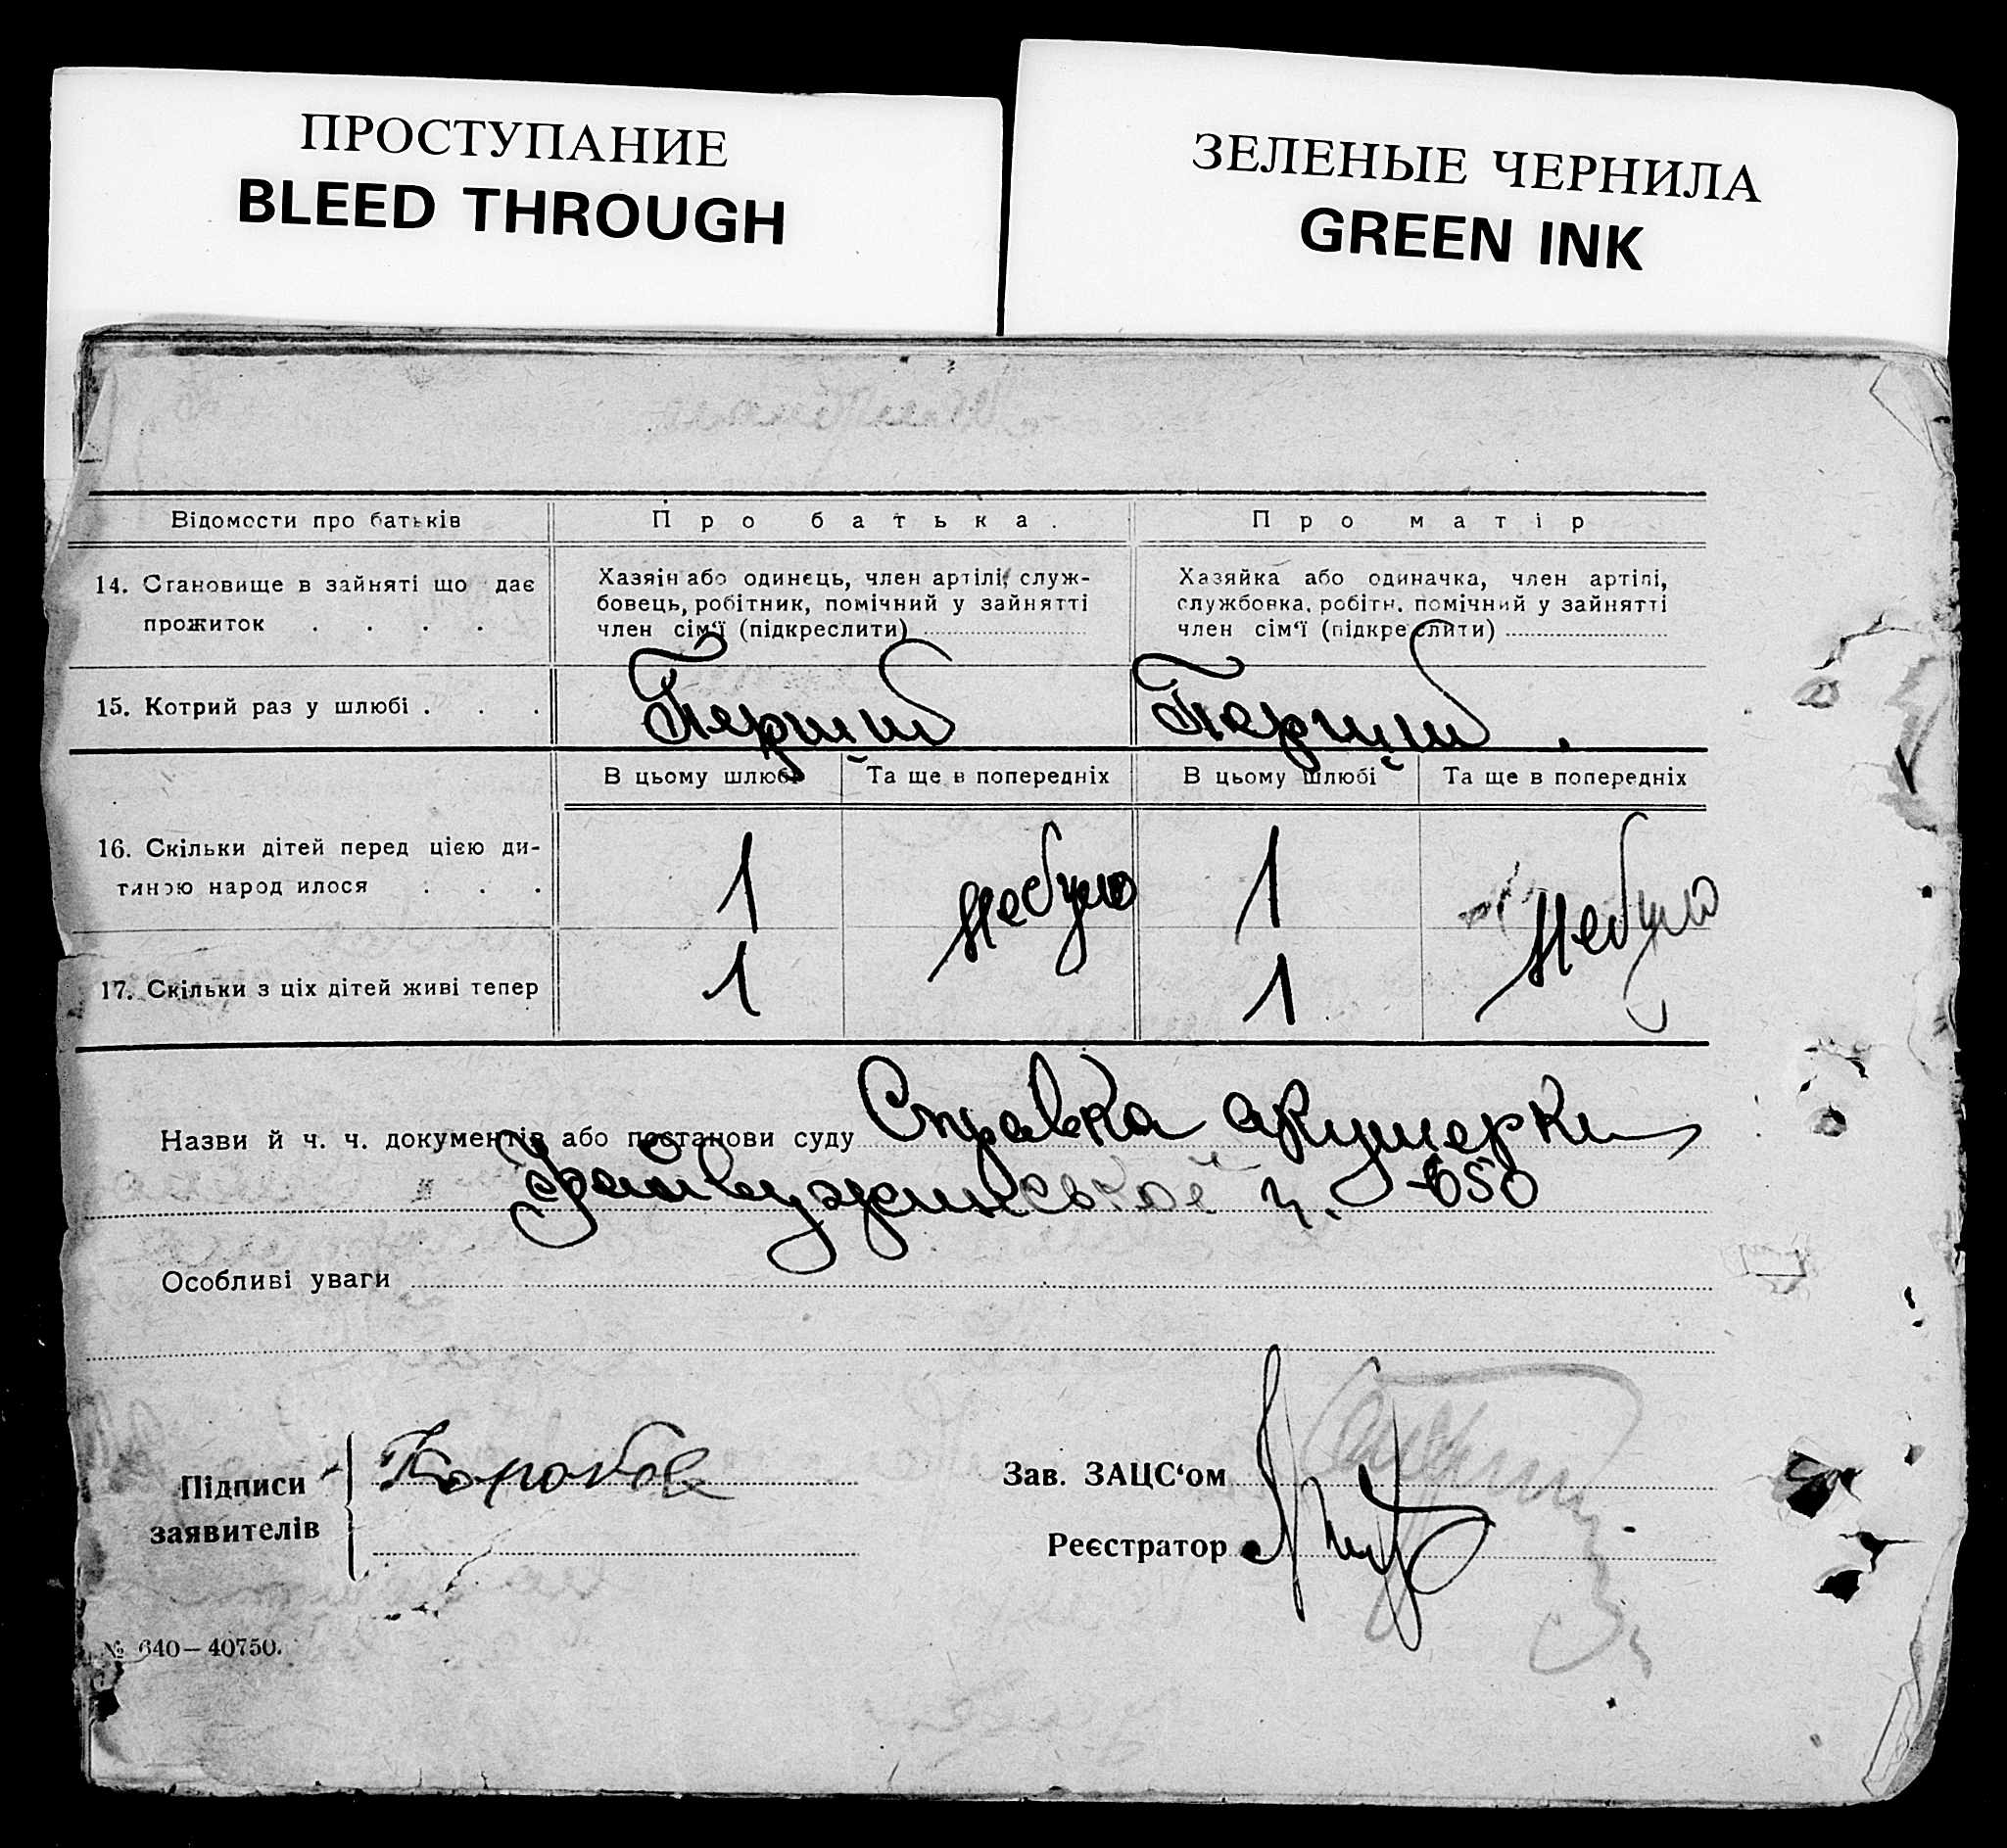 ПРОСТУПАНИЕ
BLEED THROUGH
ЗЕЛЕНЫЕ ЧЕРНИЛА
GREEN INK
Відомости про батьків
Про батька.
Про матір
14. Становище в зайняті що дає
прожиток . . . .
Хазяін або одинець, член артілі, служ-
бовець, робітник, помічний у зайнятті
член сім'ї (підкреслити)
Хазяйка або одиначка, член артілі,
службовка, робітн. помічний у зайнятті
член сім'ї (підкреслити)
15. Котрий раз у шлюбі . . .
Перший
Перший.
В цьому шлюбі
Та ще в попередніх
В цьому шлюбі
Та ще в попередніх
16. Скільки дітей перед цією ди-
тиною народилося . . .
1
Небуло
1
Небуло
17. Скільки з ціх дітей живі тепер
1
1
Назви й ч. ч. документів або постанови суду Справка акушерки
650
Особливі уваги
Підписи
заявителів
Зав. ЗАЦС'ом
Реєстратор
№ 640—40750.